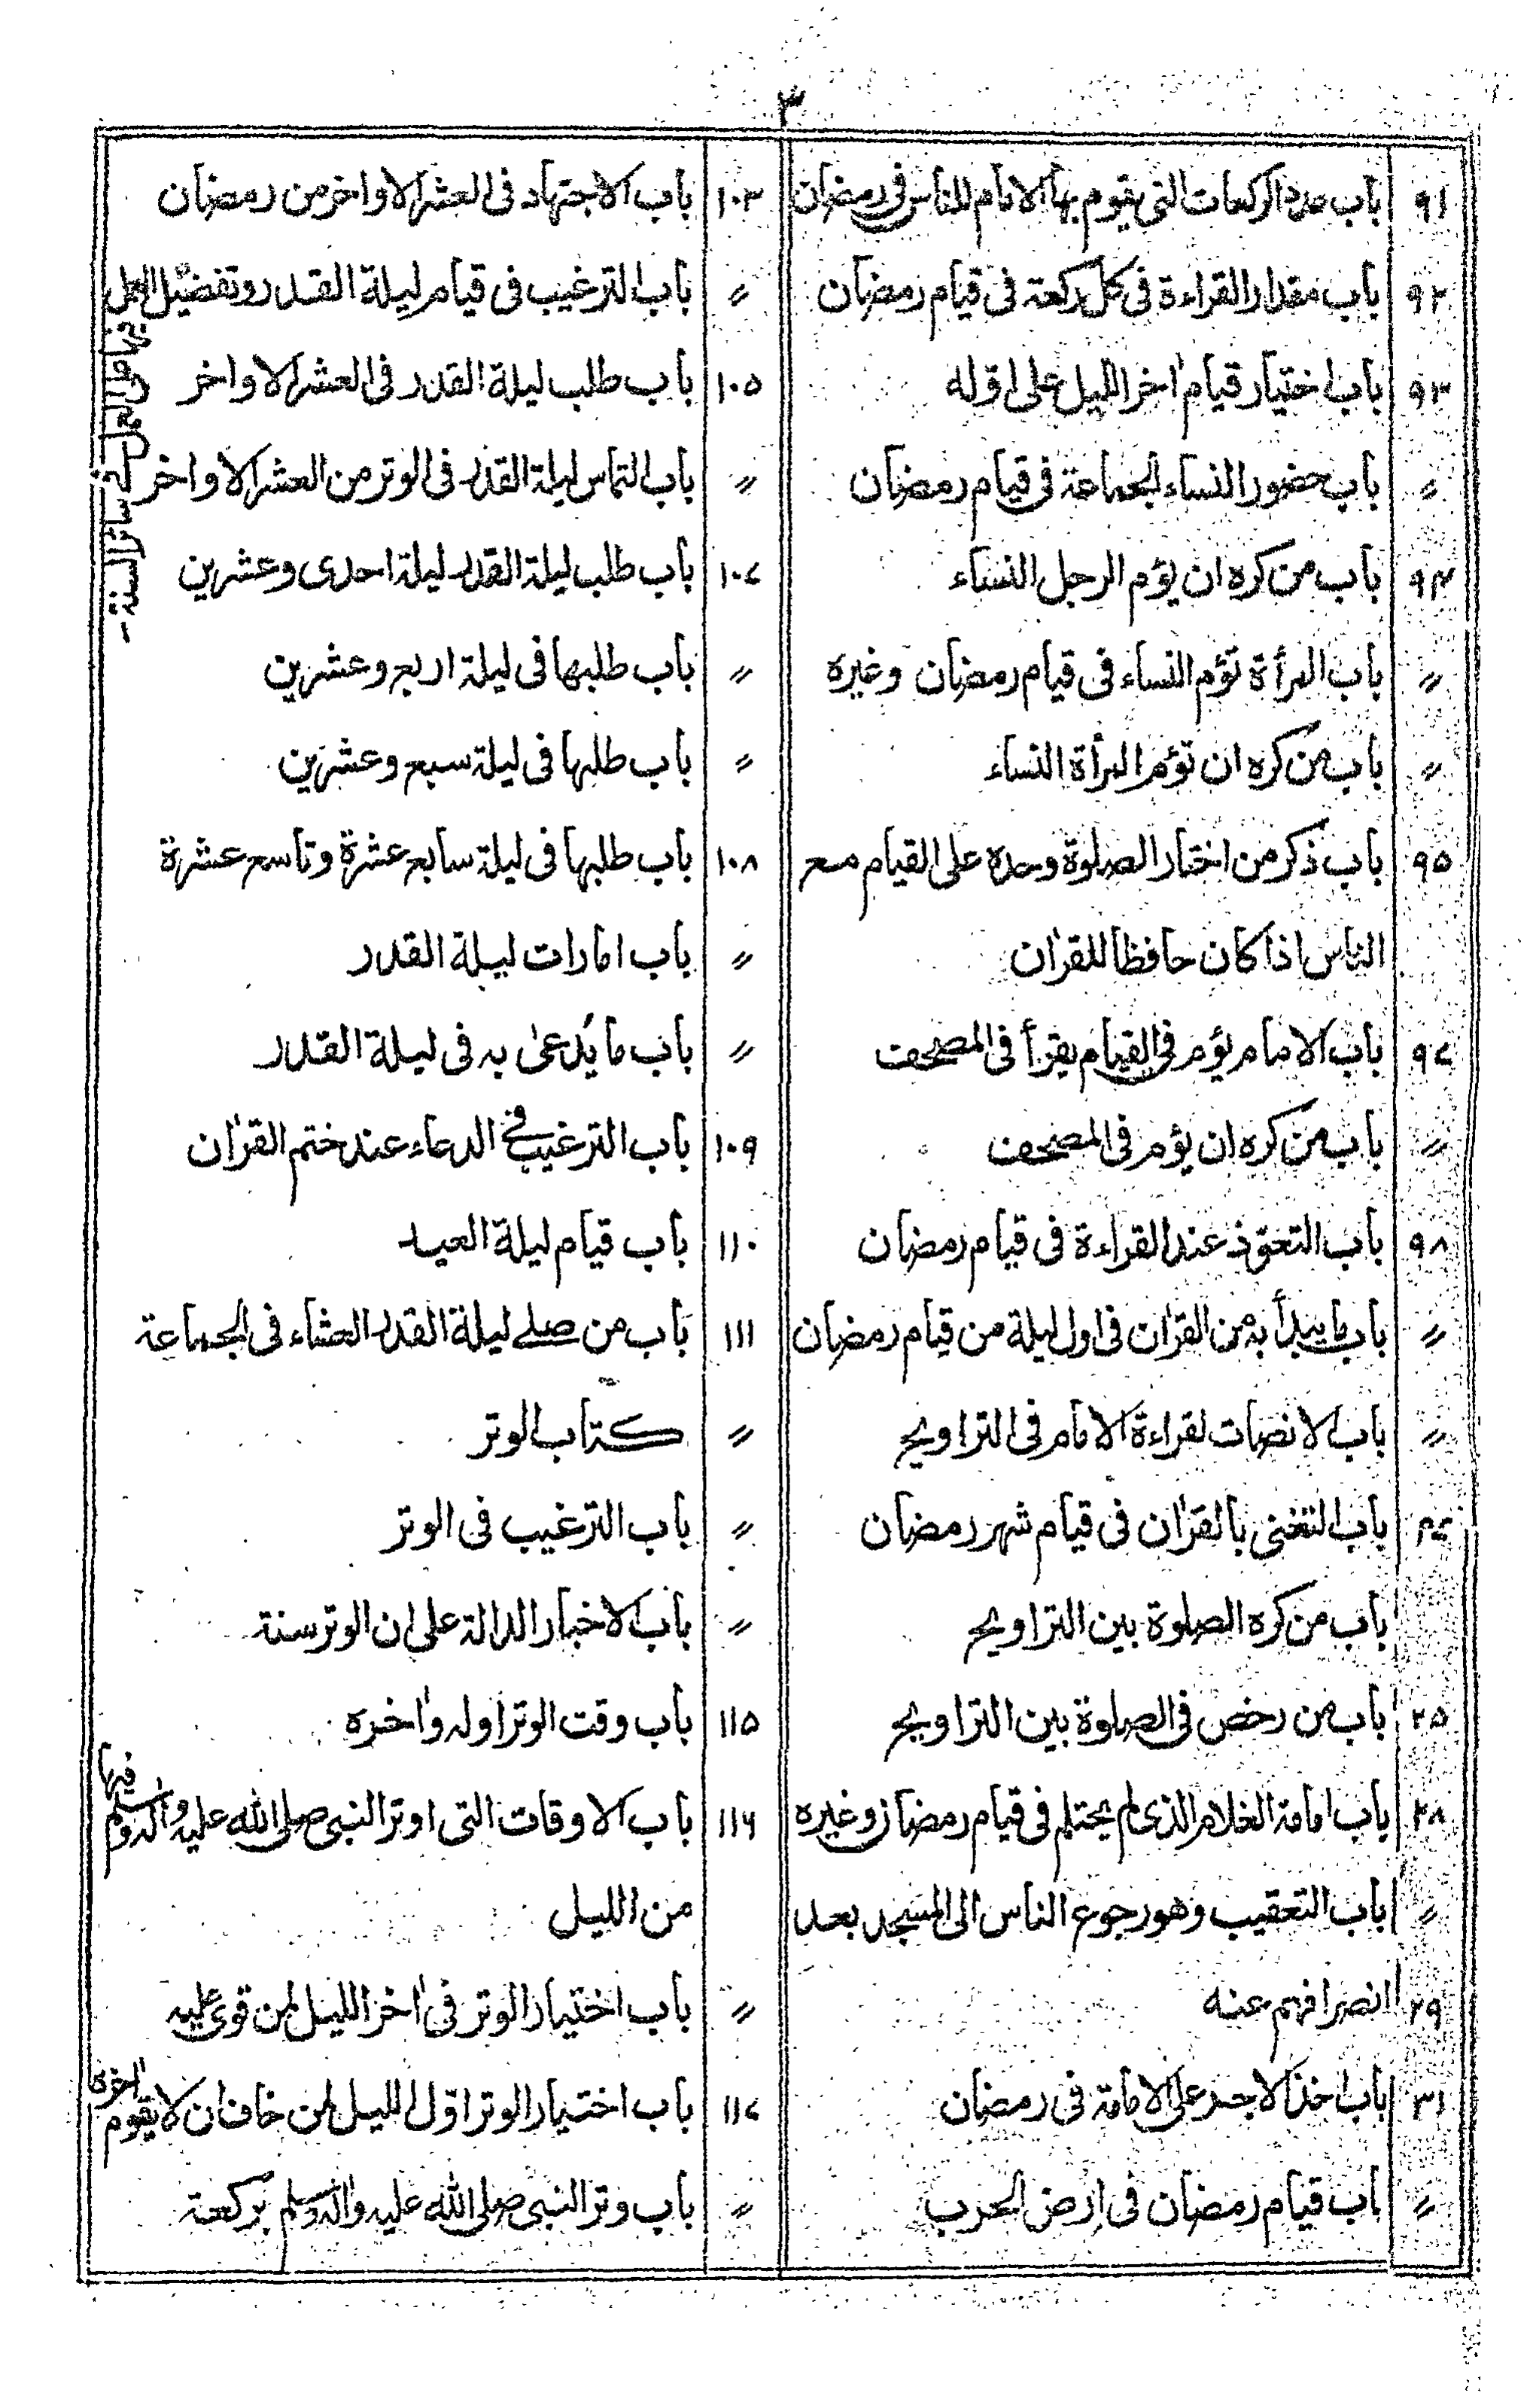 ۳
۹۱ باب عدد الركعات التى يقوم بها الامام للناس فى رمضان
۹۲ باب مقدار القراءة فى كل ركعة فى قيام رمضان
۹۳ باب اختيار قيام اٰخر الليل على اوّله
〃 باب حضور النساء الجماعة فى قيام رمضان
۹۴ باب من كره ان يؤم الرجل النساء
〃 باب المرأة تؤم النساء فى قيام رمضان وغيره
〃 باب من كره ان تؤم المرأة النساء
۹۵ باب ذكر من اختار الصلوة وحده على القيام مع
الناس اذا كان حافظا للقراٰن
۹۷ باب الامام يؤم فى القيام يقرأ فى المصحف
〃 باب من كره ان يؤم فى المصحف
۹۸ باب التعوّذ عند القراءة فى قيام رمضان
〃 باب ما يبدأ به من القراٰن فى اول ليلة من قيام رمضان
〃 باب الانصات لقراءة الامام فى التراويح
باب التغنى بالقراٰن فى قيام شهر رمضان
باب من كره الصلوة بين التراويح
باب من رخص فى الصلوة بين التراويح
باب امامة الغلام الذى لم يحتلم فى قيام رمضان وغيره
〃 باب التعقيب وهو رجوع الناس الى المسجد بعد
انصرافهم عنه
باب اخذ الاجر على الامامة فى رمضان
〃 باب قيام رمضان فى ارض الحرب
۱۰۳ باب الاجتهاد فى العشر الاواخر من رمضان
〃 باب الترغيب فى قيام ليلة القدر وتفضيل العمل
فيها على العمل فى سائر السنة -
۱۰۵ باب طلب ليلة القدر فى العشر الاواخر
〃 باب التماس ليلة القدر فى الوتر من العشر الاواخر
۱۰۷ باب طلب ليلة القدر ليلة احدى وعشرين
〃 باب طلبها فى ليلة اربع وعشرين
〃 باب طلبها فى ليلة سبع وعشرين
۱۰۸ باب طلبها فى ليلة سابع عشرة وتاسع عشرة
〃 باب امارات ليلة القدر
〃 باب ما يُدعىٰ به فى ليلة القدر
۱۰۹ باب الترغيب فى الدعاء عند ختم القراٰن
۱۱۰ باب قيام ليلة العيد
۱۱۱ باب من صلے ليلة القدر العشاء فى الجماعة
〃 كتاب الوتر
〃 باب الترغيب فى الوتر
〃 باب الاخبار الدالة على ان الوتر سنة
۱۱۵ باب وقت الوتر اوله واٰخره
۱۱۶ باب الاوقات التى اوتر النبى صلى الله عليه واٰله وسلم فيها
من الليل
〃 باب اختيار الوتر فى اٰخر الليل لمن قوى عليه
۱۱۷ باب اختيار الوتر اوّل الليل لمن خاف ان لا يقوم اٰخره
〃 باب وتر النبى صلى الله عليه واٰله وسلم بركعة